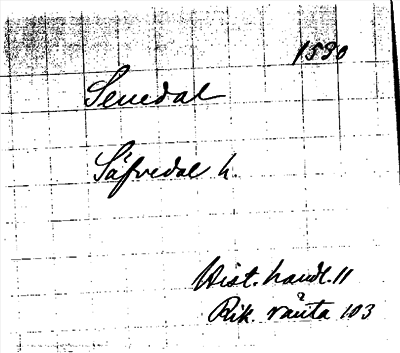 1530
Senedal
Säfvedal h.
Hist. handl. 11
Rik. ränta 103